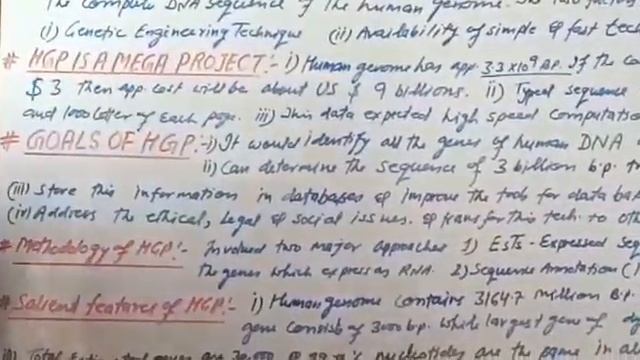 The complete DNA sequence of the human genome. The two factors
(i) Genetic Engineering Technique (ii) Availability of simple & fast tech
# HGP IS A MEGA PROJECT:- i) Human genome has app. 3.3x10⁹ bp. If the co
$ 3 then app. cost will be about US $ 9 billions. ii) Typed sequence
and 1000 letter of each page. iii) This data expected high speed computatio
# GOALS OF HGP:- i) It would identify all the genes of human DNA
ii) Can determine the sequence of 3 billion b.p. t
(iii) Store this information in databases & improve the tools for data ba
(iv) Address the ethical, legal & social issues. & transfer this tech. to oth
# Methodology of HGP:- Involved two major approaches 1) ESTs - Expressed Seq
the genes which express as RNA. 2) Sequence Annotation (
# Salient features of HGP:- i) Human genome contains 3164.7 million b.p.
gene consists of 3000 b.p. which largest gene of
Total genes are 30,000 & 99.9% nucleotides are the same in al